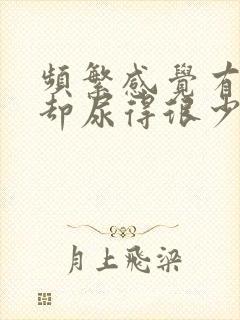 頻繁感覺有
却尿得很少
月上飛梁